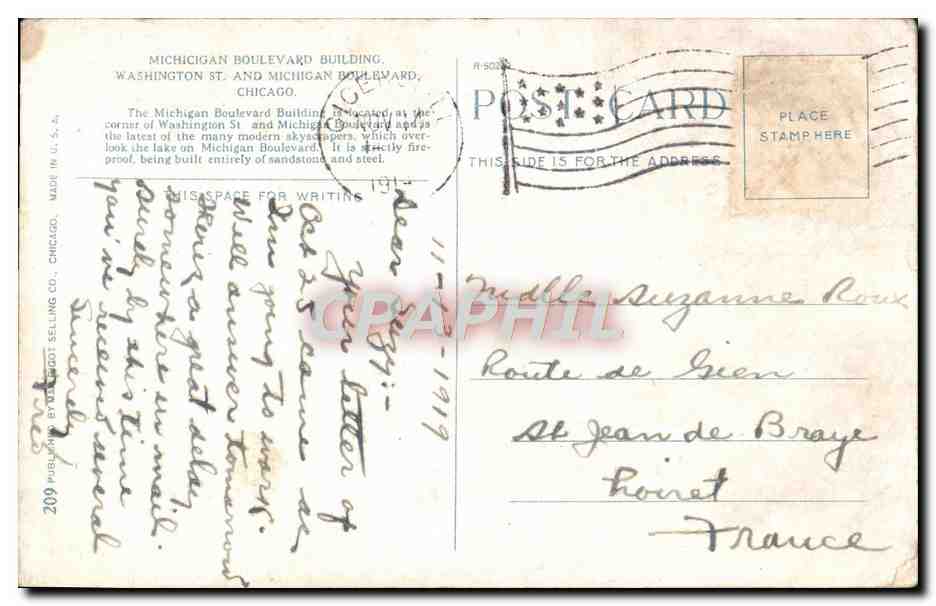 MICHICIGAN BOULEVARD BUILDING,
WASHINGTON ST. AND MICHIGAN BOULEVARD,
CHICAGO.
The Michigan Boulevard Building is located at the
corner of Washington St. and Michigan Boulevard and is
the latest of the many modern skyscrapers, which over-
look the lake on Michigan Boulevard. It is strictly fire-
proof, being built entirely of sandstone and steel.
THIS SPACE FOR WRITING
POST CARD
THIS SIDE IS FOR THE ADDRESS
PLACE
STAMP HERE
209 PUBLISHED BY SELLING CO., CHICAGO. MADE IN U. S. A.
11-13-1919
Dear Suzy:-
Your letter of
Oct 25 came as
I'm going to work.
Will answer tomorrow
There's a great delay
somewhere in mail.
Surely by this time
you've received several
Sincerely
Mdlle Suzanne Roux
Route de Gien
St Jean de Braye
Loiret
France
CPAPHIL